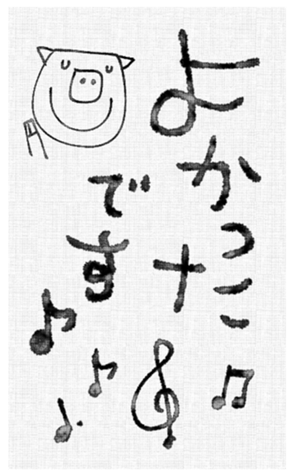 よかった
です